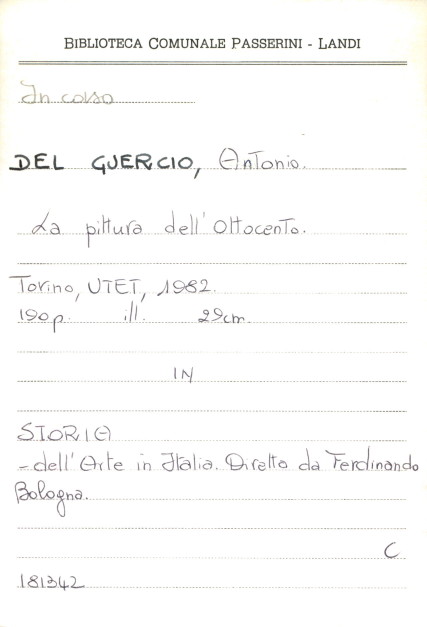 BIBLIOTECA COMUNALE PASSERINI - LANDI
In corso
DEL GUERCIO, Antonio.
La pittura dell'Ottocento.
Torino, UTET, 1982.
190p. ill. 29cm.
IN
STORIA
-dell'Arte in Italia. Diretta da Ferdinando
Bologna.
C
181342